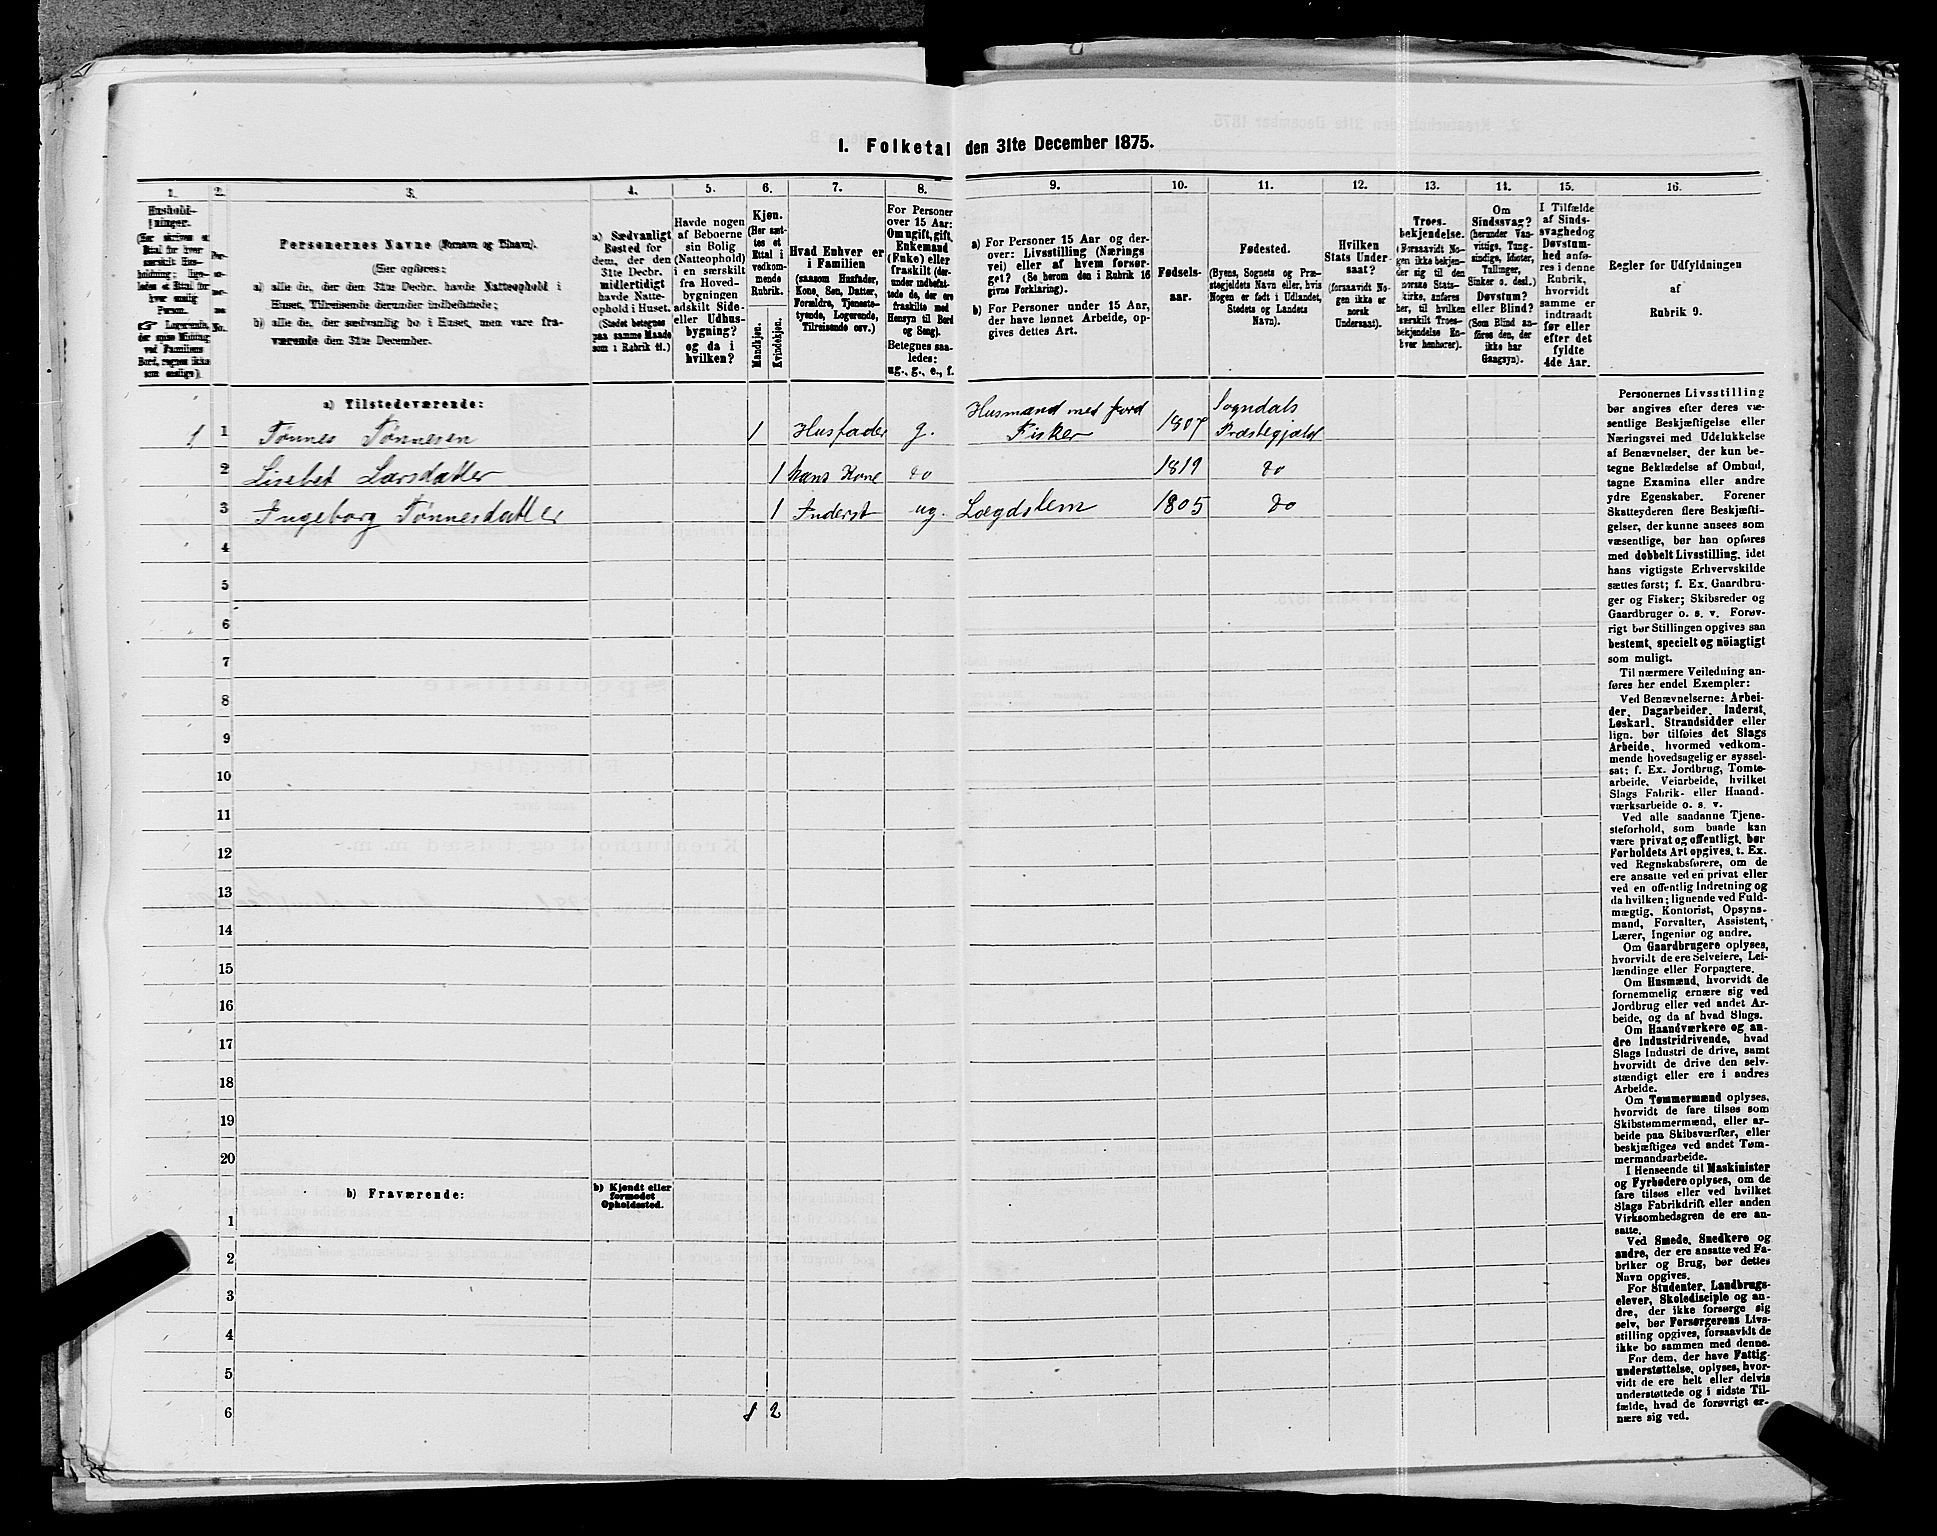 I. Folketal den 31te December 1875.
1. 2. 3. 4. 5. 6. 7. 8. 9. 10. 11. 12. 13. 14. 15. 16.
Hushold-
ninger.
Personernes Navne (Fornavn og Tilnavn).
(Her opføres:
a) alle de, der den 31te Decbr. havde Natteophold i
Huset, Tilreisende derunder indbefattede;
b) alle de, der sædvanlig bo i Huset, men vare fra-
værende den 31te December.
a) Sædvanligt
Bosted for
dem, der den
31te Decbr.
midlertidigt
havde Natte-
ophold i Huset.
(Stedet betegnes
paa samme Maade
som i Rubrik 11.)
Havde nogen
af Beboerne
sin Bolig
(Natteophold)
i en særskilt
fra Hoved-
bygningen
adskilt Side-
eller Udhus-
bygning?
og da i
hvilken?
Kjøn.
(Her sæt-
tes et
Ettal i
vedkom-
mende
Rubrik.
Mandkjøn.
Kvindekjøn.
Hvad Enhver er
i Familien
(saasom Husfader,
Kone, Søn, Datter,
Forældre, Tjeneste-
tyende, Logerende,
Tilreisende osv.)
For Personer
over 15 Aar:
Om ugift, gift,
Enkemand
(Enke) eller
fraskilt (der-
under indbefat-
tede de, der ere
fraskilte med
Hensyn til Bord
og Seng).
Betegnes saa-
ledes:
ug., g., e., f.
a) For Personer 15 Aar og der-
over: Livsstilling (Nærings
vei) eller af hvem forsør-
get? (Se herom den i Rubrik 16
givne Forklaring).
b) For Personer under 15 Aar,
der have lønnet Arbeide, op-
gives dettes Art.
Fødsels-
aar.
Fødested.
(Byens, Sognets og Præ-
stegjeldets Navn eller, hvis
Nogen er født i Udlandet,
Stedets og Landets
Navn).
Hvilken
Stats Under-
saat?
(forsaavidt No-
gen ikke er
norsk
Undersaat).
Troes-
bekjendelse.
(Forsaavidt No-
gen ikke bekjen-
der sig til den
norske Stats-
kirke, anføres
her, til hvilken
særskilt Troes-
bekjendelse En-
hver henhører).
Om
Sindssvag?
(herunder Van-
vittige, Tung-
sindige, Idioter,
Tullinger,
Sinker o. desl.)
Døvstum?
eller Blind?
(Som Blind an-
føres den, der
ikke har
Gangsyn).
I Tilfælde
af Sinds-
svaghed og
Døvstum-
hed anfø-
res i denne
Rubrik,
hvorvidt
samme er
indtraadt
før eller
efter det
fyldte
4de Aar.
Regler for Udfyldningen
af
Rubrik 9.
a) Tilstedeværende:
1 1 Tønnes Tønnesen 1 Husfader g. Husmand med Jord Fisker 1807 Sogndals Præstegjæld
2 Lisebet Larsdatter 1 hans Kone do 1819 do
3 Ingeborg Tønnesdatter 1 Inderst ug. Lægdslem 1805 do
4
5
6
7
8
9
10
11
12
13
14
15
16
17
18
19
20
b) Fraværende:
b) Kjendt eller
formodet
Opholdssted.
1
2
3
4
5
6
1 2
Personernes Livsstilling
bør angives efter deres væ-
sentlige Beskjæftigelse eller
Næringsvei med Udelukkelse
af Benævnelser, der kun be-
tegne Beklædelse af Ombud,
tagne Examina eller andre
ydre Egenskaber. Forener
Skatteyderen flere Beskjæfti-
gelser, der kunne ansees som
væsentlige, bør han opføres
med dobbelt Livsstilling, idet
hans vigtigste Erhvervskilde
sættes først; f. Ex. Gaardbru-
ger og Fisker; Skibsreder og
Gaardbruger o. s. v. Forøv-
rigt bør Stillingen opgives saa
bestemt, specielt og nøiagtigt
som muligt.
Til nærmere Veiledning an-
føres her endel Exempler:
Ved Benævnelserne: Arbei-
der, Dagarbeider, Inderst,
Løskarl, Strandsidder eller
lign. bør tilføies det Slags
Arbeide, hvormed vedkom-
mende hovedsagelig er syssel-
sat; f. Ex. Jordbrug, Tomte-
arbeide, Veiarbeide, hvilket
Slags Fabrik- eller Haand-
værksarbeide o. s. v.
Ved alle saadanne Tjene-
steforhold, som baade kan
være privat og offentligt, bør
Forholdets Art opgives, t. Ex.
ved Regnskabsførere, om de
ere ansatte ved en privat eller
ved en offentlig Indretning og
da hvilken; lignende ved Fuld-
mægtig, Kontorist, Opsyns-
mand, Forvalter, Assistent,
Lærer, Ingeniør og andre.
Om Gaardbrugere oplyses,
hvorvidt de ere Selveiere, Lei-
lændinge eller Forpagtere.
Om Husmænd, hvorvidt de
fornemmelig ernære sig ved
Jordbrug eller ved andet Ar-
beide, og da af hvad Slags.
Om Haandværkere og an-
dre Industridrivende, hvad
Slags Industri de drive, samt
hvorvidt de drive den selv-
stændigt eller ere i andres
Arbeide.
Om Tømmermænd oplyses,
hvorvidt de fare tilsøs som
Skibstømmermænd, eller ar-
beide paa Skibsværfter, eller
beskjæftiges ved andet Tøm-
mermandsarbeide.
I Henseende til Maskinister
og Fyrbødere oplyses, om de
fare tilsøs eller ved hvilket
Slags Fabrikdrift eller anden
Virksomhedsgren de ere an-
satte.
Ved Smede, Snedkere og
andre, der ere ansatte ved Fa-
briker og Brug, bør dettes
Navn opgives.
For Studenter, Landbrugs-
elever, Skoledisciple og an-
dre, der ikke forsørge sig
selv, bør Forsørgerens Livs-
stilling opgives, forsaavidt de
ikke bo sammen med denne.
For dem, der have Fattig-
understøttelse, oplyses, hvor-
vidt de ere helt eller delvis
understøttede og i sidste Til-
fælde, hvad de forøvrigt er-
nære sig ved.